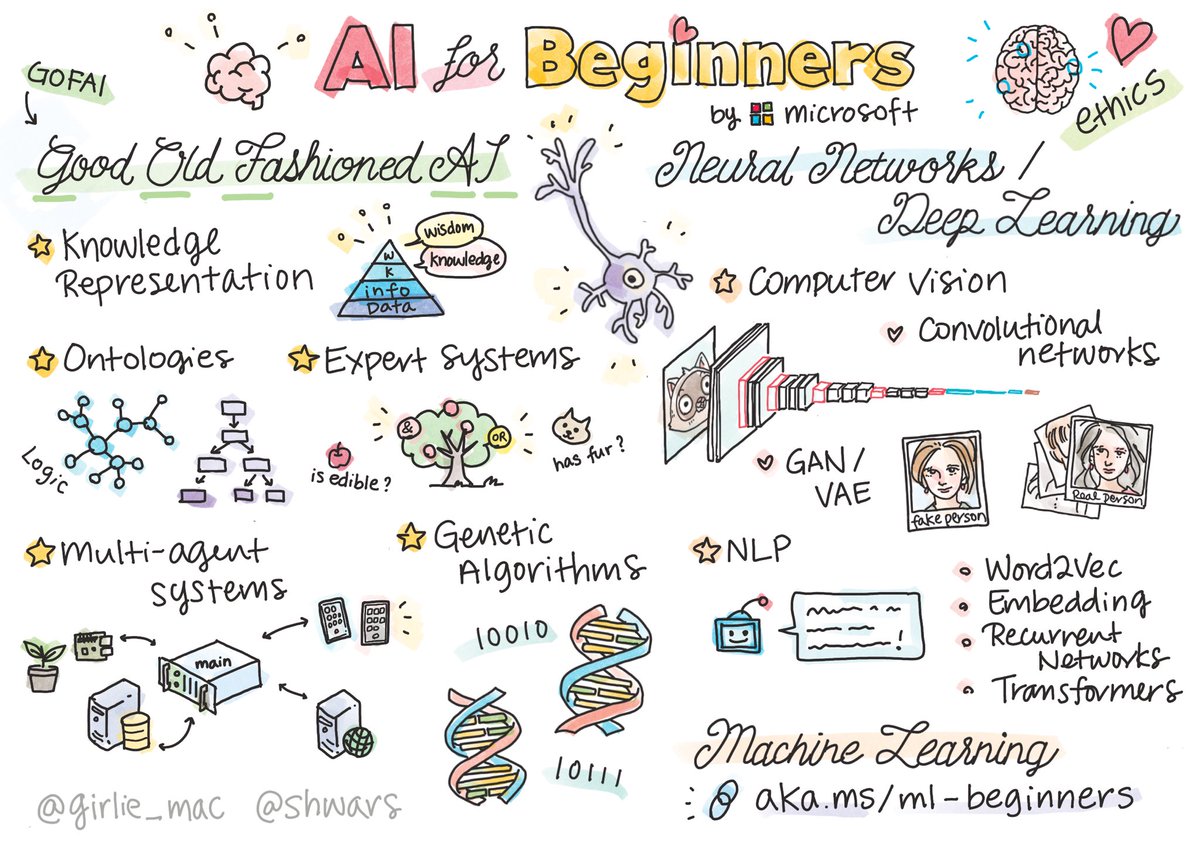 AI for Beginners
by microsoft
GOFAI
ethics
Good Old Fashioned AI
Knowledge
Representation
wisdom
knowledge
W
K
info
Data
Ontologies
Logic
Expert Systems
&
OR
is edible?
has fur?
Multi-agent
systems
main
Genetic
Algorithms
10010
10111
@girlie_mac @shwars
Neural Networks /
Deep Learning
Computer Vision
Convolutional
networks
GAN /
VAE
fake person
Real person
NLP
!
Word2Vec
Embedding
Recurrent
Networks
Transformers
Machine Learning
aka.ms/ml-beginners